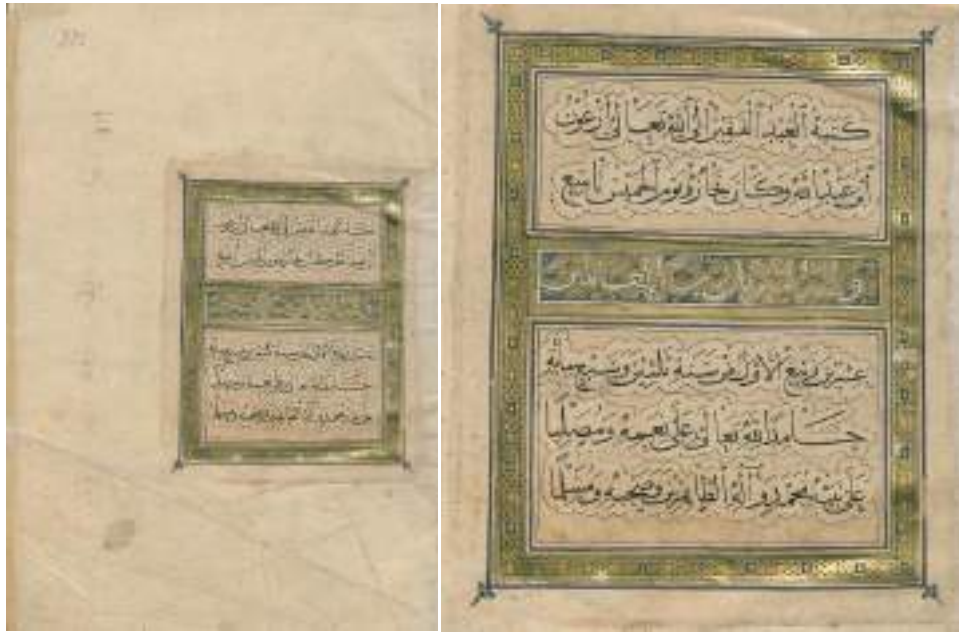 كتبه العبد الفقير الى الله تعالى ارغون
بن عبد الله وكان نجازه يوم الخميس تاسع
رب العالمين
عشرين ربيع الاول من سنة ثلثين وسبع مايه
حامدا لله تعالى على نعمه ومصليا
على نبيه محمد وآله الطاهرين وصحبه ومسلما